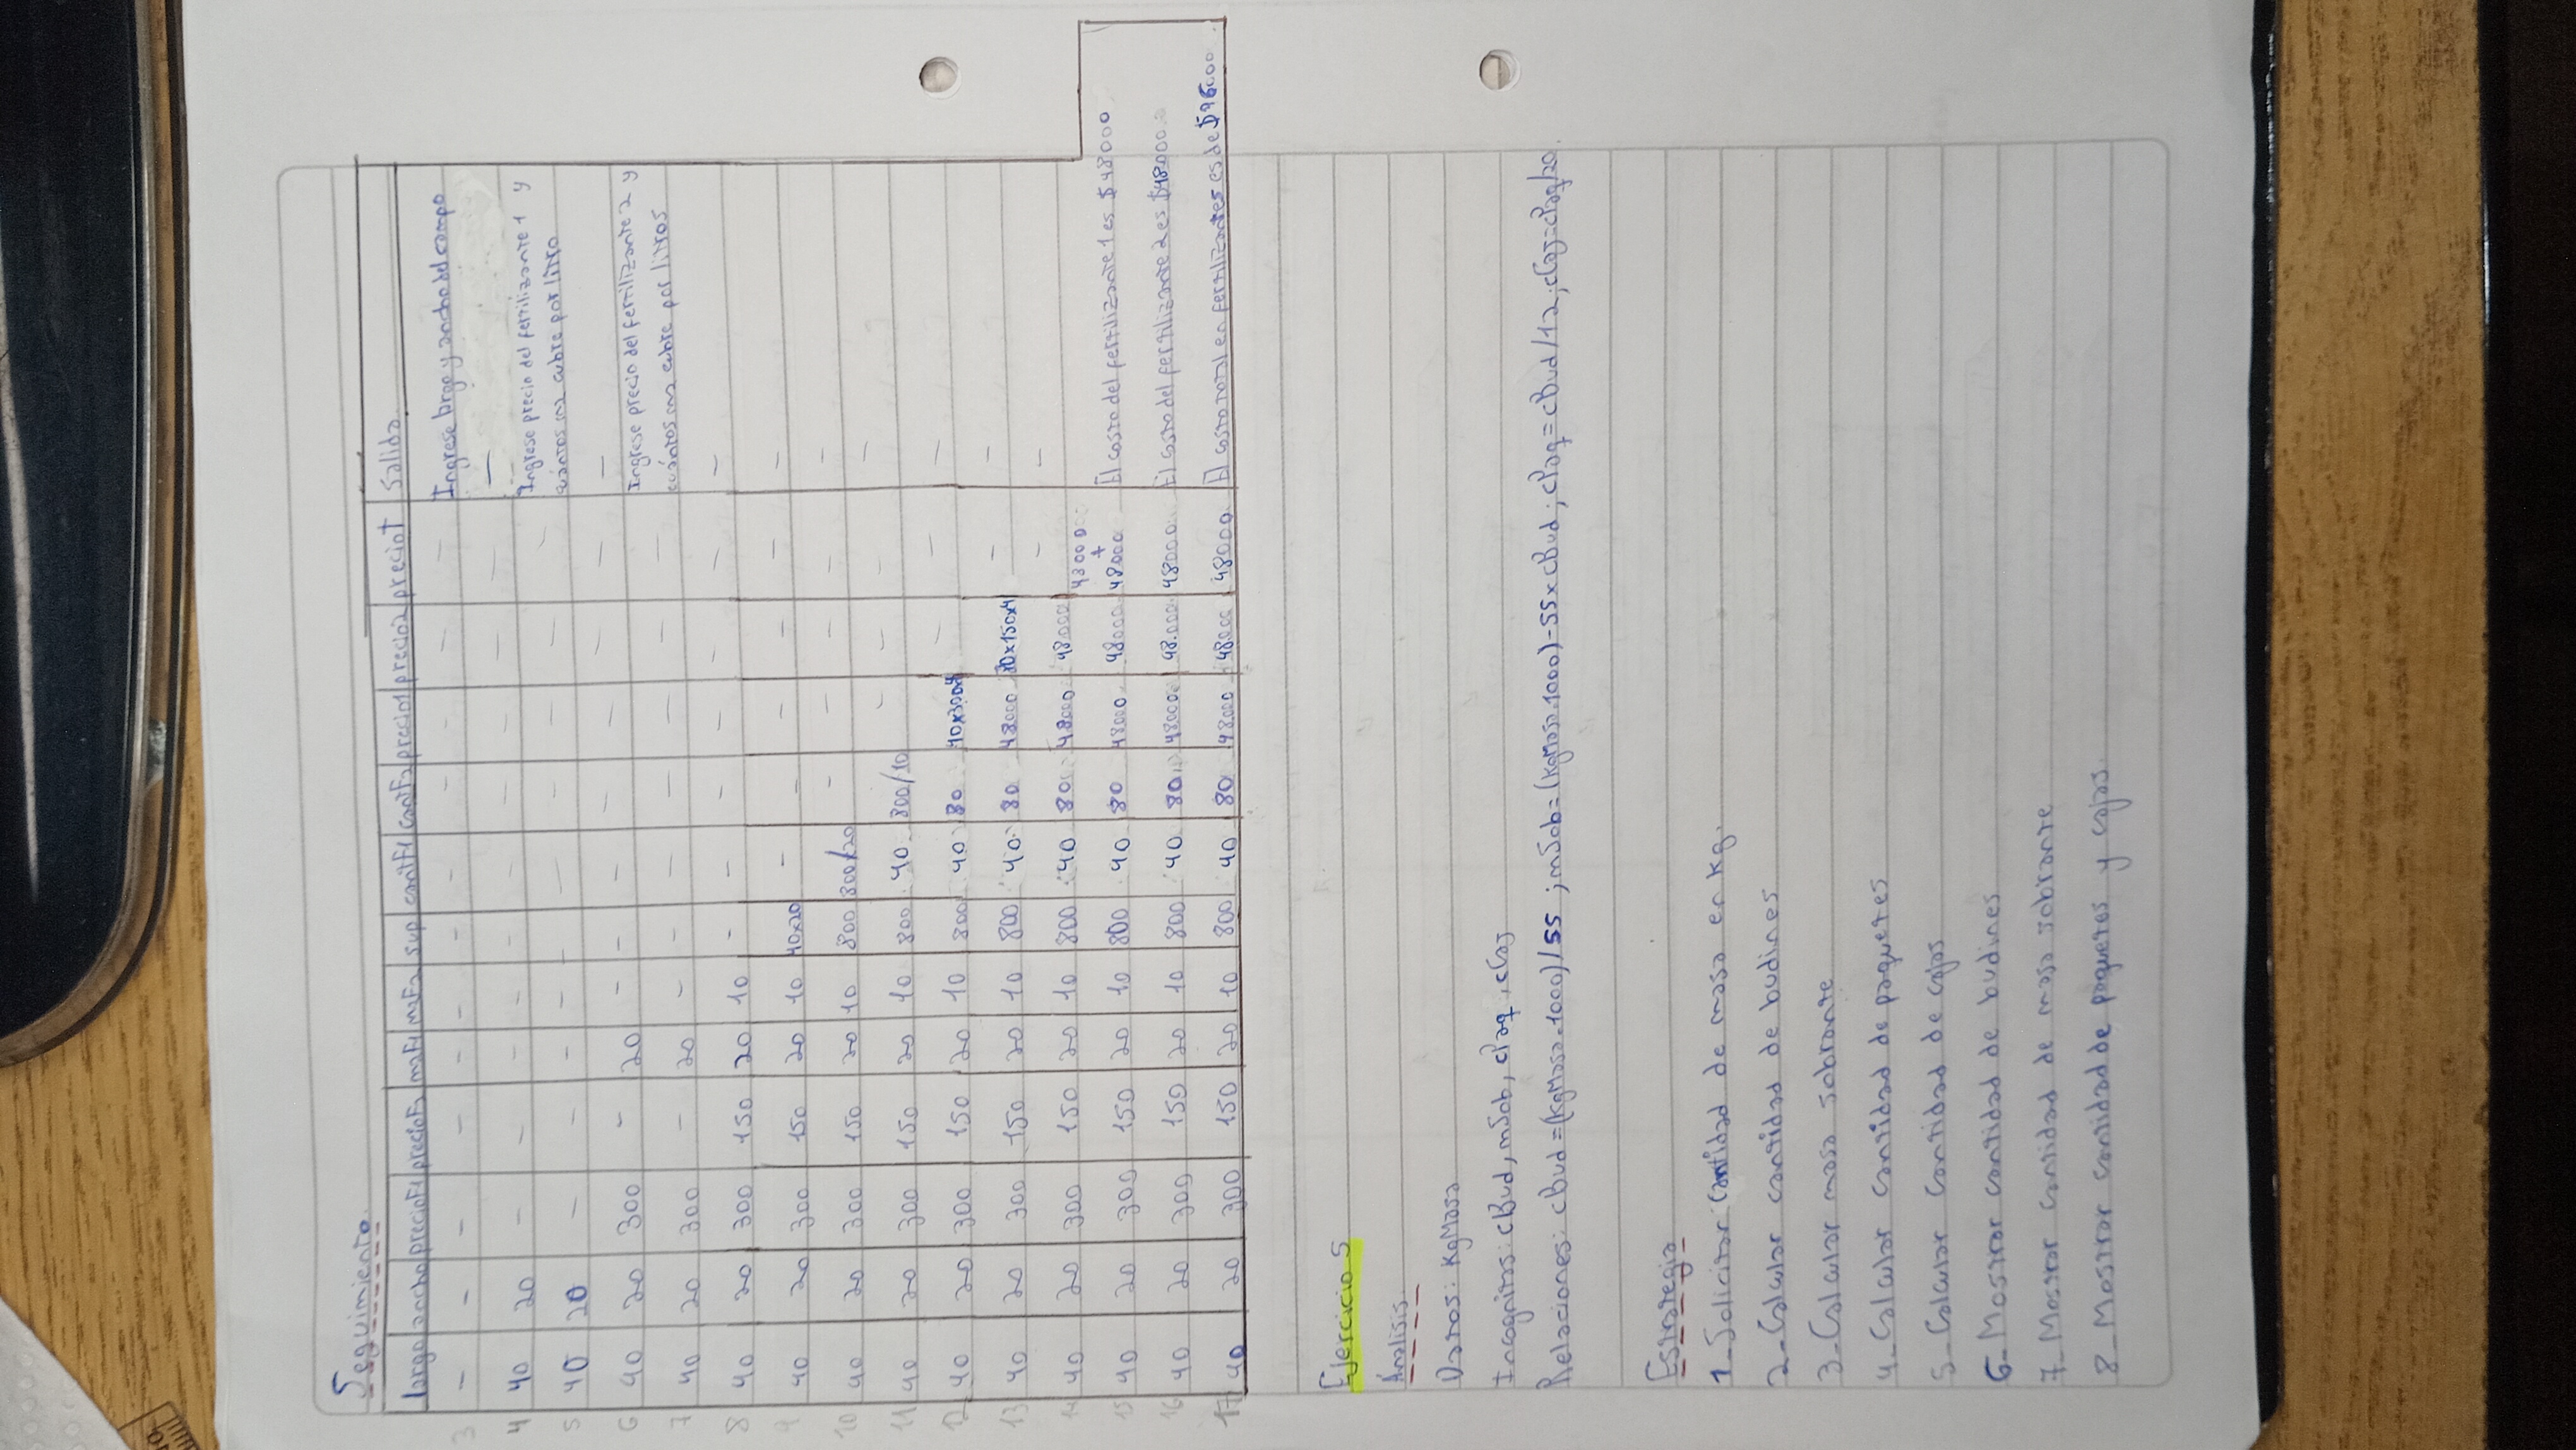 Seguimiento.
largo ancho precioF1 precioF2 m2F1 m2F2 sup cantF1 cantF2 precio1 precio2 precioT Salida
3 — — — — — — — — — — — — Ingrese largo y ancho del campo
4 40 20 — — — — — — — — — — —
5 40 20 — — — — — — — — — — Ingrese precio del fertilizante 1 y
cuántos m2 cubre por litro
6 40 20 300 — 20 — — — — — — — —
7 40 20 300 — 20 — — — — — — — Ingrese precio del fertilizante 2 y
cuántos m2 cubre por litros
8 40 20 300 150 20 10 — — — — — — —
9 40 20 300 150 20 10 40x20 — — — — — —
10 40 20 300 150 20 10 800 800/20 — — — — —
11 40 20 300 150 20 10 800 40 800/10 — — — —
12 40 20 300 150 20 10 800 40 80 40x300x4 — — —
13 40 20 300 150 20 10 800 40 80 48000 80x150x4 — —
14 40 20 300 150 20 10 800 40 80 48000 48.000 48000 + 48000 —
15 40 20 300 150 20 10 800 40 80 48000 48000 El costo del fertilizante 1 es $48000
16 40 20 300 150 20 10 800 40 80 48000 48.000 48000 El costo del fertilizante 2 es $48000
17 40 20 300 150 20 10 800 40 80 48000 48000 48000 El costo total en fertilizantes es de $96000
Ejercicio 5
Análisis
Datos: KgMasa
Incognitas: cBud, mSob, cPaq, cCaj
Relaciones: cBud = (KgMasa.1000)/55 ; mSob = (KgMasa.1000)-55 x cBud ; cPaq = cBud/12 ; cCaj = cPaq/20.
Estrategia
1_ Solicitar cantidad de masa en Kg.
2_ Calcular cantidad de budines
3_ Calcular masa sobrante
4_ Calcular cantidad de paquetes
5_ Calcular cantidad de cajas
6_ Mostrar cantidad de budines
7_ Mostrar cantidad de masa sobrante
8_ Mostrar cantidad de paquetes y cajas.